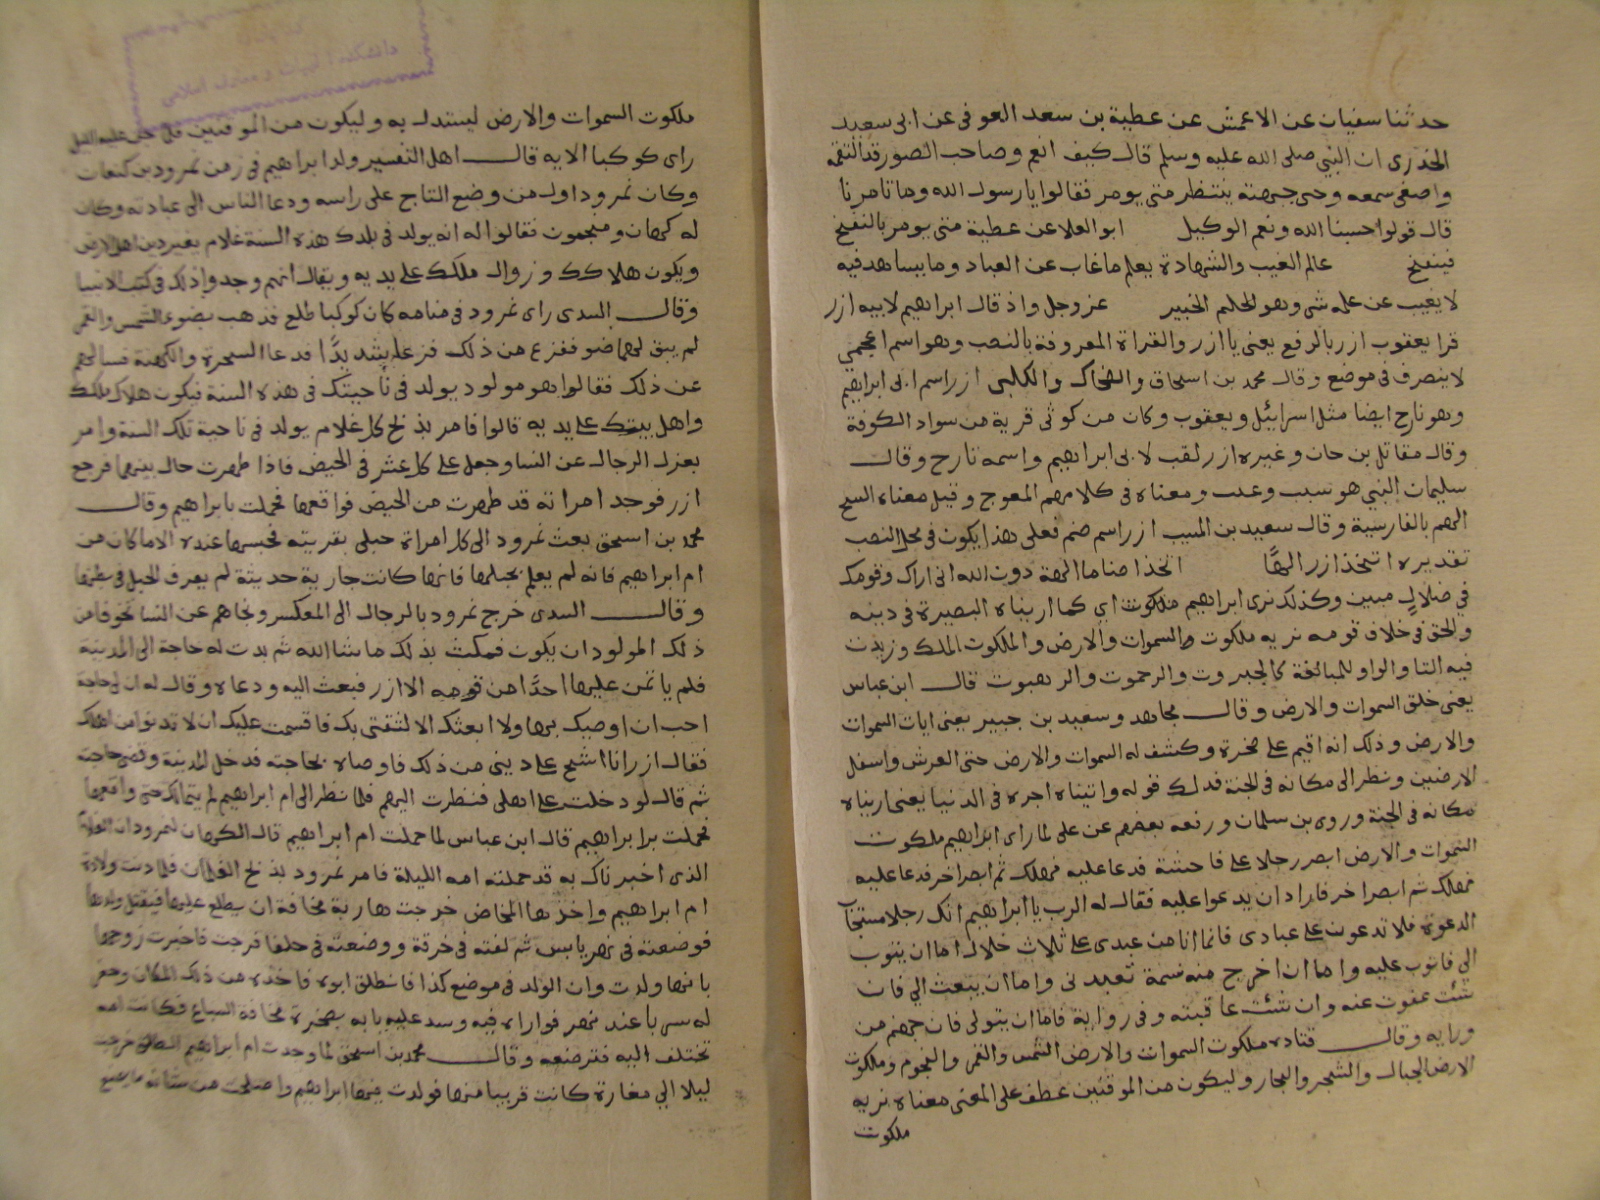 حدثنا سفيان عن الاعمش عن عطية بن سعد العوفى عن ابى سعيد
الخدرى ان النبي صلى الله عليه وسلم قال كيف انعم وصاحب الصور قد التقمه
واصغى سمعه وحنى جبهته ينتظر متى يومر فقالوا يا رسول الله وما تامرنا
قال قولوا حسبنا الله ونعم الوكيل ابو العلا عن عطية متى يومر بالنفخ
فينفخ عالم الغيب والشهادة يعلم ما غاب عن العباد وما يشاهد فيه
لا يغيب عن علمه شى وهو الحكيم الخبير عز وجل واذ قال ابراهيم لابيه ازر
قرا يعقوب ازر بالرفع يعنى يا ازر والقراة المعروفة بالنصب وهو اسم اعجمي
لا ينصرف فى موضع وقال محمد بن اسحاق والضحاك والكلبى ازر اسم ابى ابراهيم
وهو تارح ايضا مثل اسرائيل ويعقوب وكان من كوثى قرية من سواد الكوفة
وقال مقاتل بن حان وغيره ازر لقب لابى ابراهيم واسمه تارح وقال
سليمان التيمي هو سبب وعيب ومعناه فى كلامهم المعوج وقيل معناه الشيخ
الهم بالفارسية وقال سعيد بن المسيب ازر اسم صنم فعلى هذا يكون فى محل النصب
تقديره اتتخذ ازر الهًا اتخذ اصناما الهة دون الله انى اراك وقومك
في ضلال مبين وكذلك نرى ابراهيم ملكوت اى كما اريناه البصيرة فى دينه
والحق فى خلاف قومه نريه ملكوت السموات والارض والملكوت الملك وزيدت
فيه التا والواو للمبالغة كالجبروت والرحموت والرهبوت قال ابن عباس
يعنى خلق السموات والارض وقال مجاهد وسعيد بن جبير يعنى ايات السموات
والارض وذلك انه اقيم على صخرة وكشف له السموات والارض حتى العرش واسفل
الارضين ونظر الى مكانه فى الجنة فذلك قوله واتيناه اجره فى الدنيا يعنى اريناه
مكانه فى الجنة وروى بن سلمان ورفعه بعضهم عن على لما راى ابراهيم ملكوت
السموات والارض ابصر رجلا على فاحشة فدعا عليه فهلك ثم ابصر اخر فدعا عليه
فهلك ثم ابصر اخر فاراد ان يدعو عليه فقال له الرب يا ابراهيم انك رجل مستجاب
الدعوة فلا تدعون على عبادى فانما انا من عبدى على ثلاث خلال اما ان يتوب
الي فاتوب عليه واما ان اخرج منه نسمة تعبدنى واما ان يبعث الي فان
شئت عفوت عنه وان شئت عاقبته وفى رواية فاما ان يتولى فان جهنم من
ورايه وقال قتاده ملكوت السموات والارض الشمس والقمر والنجوم وملكوت
الارض الجبال والشجر والبحار وليكون من الموقنين عطف على المعنى معناه نريه
ملكوت
ملكوت السموات والارض ليستدل به وليكون من الموقنين فلما جن عليه الليل
راى كوكبا الايه قال اهل التفسير ولد ابراهيم فى زمن نمرود بن كنعان
وكان نمرود اول من وضع التاج على راسه ودعا الناس الى عبادته وكان
له كهان ومنجمون فقالوا له انه يولد فى بلدك هذه السنة غلام يغير دين اهل الارض
ويكون هلاكك وزوال ملكك على يديه ويقال انهم وجدوا ذلك فى كتب الانبيا
وقال السدى راى نمرود فى منامه كان كوكبا طلع فذهب بضوء الشمس والقمر
لم يبق لهما ضو ففزع من ذلك فزعا شديدًا فدعا السحرة والكهنة فسالهم
عن ذلك فقالوا هو مولود يولد فى ناحيتك فى هذه السنة فيكون هلاك ملكك
واهل بيتك على يديه قالوا فامر بذبح كل غلام يولد فى ناحية تلك السنة وامر
بعزل الرجال عن النسا وجعل على كل عشر فى الحيض فاذا طهرت حال بينهما فرجع
ازر فوجد امراته قد طهرت من الحيض فواقعها فحملت بابراهيم وقال
محمد بن اسحق بعث نمرود الى كل امراة حبلى بقريته فحبسها عنده الا ما كان من
ام ابراهيم فانه لم يعلم بحبلها فانها كانت جارية حديثة لم يعرف الحبل فى بطنها
وقال السدى خرج نمرود بالرجال الى المعكسر ونحاهم عن النسا تخوفا من
ذلك المولود ان يكون فمكث بذلك ما شا الله ثم بدت له حاجة الى المدينة
فلم ياتمن عليها احدًا من قومه الا ازر فبعث اليه ودعاه وقال له ان لى حاجة
احب ان اوصيك بها ولا ابعثك الا لثقتى بك فاقسمت عليك ان لا تدنو من اهلك
فقال ازر انا اشح على دينى من ذلك فاوصاه بحاجته فدخل المدينة وقضى حاجته
ثم قال لو دخلت على اهلى فنظرت اليهم فلما نظر الى ام ابراهيم لم يتمالك حتى واقعها
فحملت بابراهيم قال ابن عباس لما حملت ام ابراهيم قال الكهان لنمرود ان الغلام
الذى اخبرناك به قد حملته امه الليلة فامر نمرود بذبح الغلمان فلما دنت ولادة
ام ابراهيم واخذها المخاض خرجت هاربة مخافة ان يطلع عليها فيقتل ولدها
فوضعته فى نهر يابس ثم لفته فى خرقة ووضعته فى حلفا فرجت فاخبرت زوجها
بانها ولدت وان الولد فى موضع كذا فانطلق ابوه فاخذه من ذلك المكان وحفر
له سربا عند نهر فواراه فيه وسد عليه بابه بصخرة مخافة السباع فكانت امه
تختلف اليه فترضعه وقال محمد بن اسحق لما وجدت ام ابراهيم الطلق خرجت
ليلا الي مغارة كانت قريبا منها فولدت فيها ابراهيم واصلحت من شانه ما يصنع